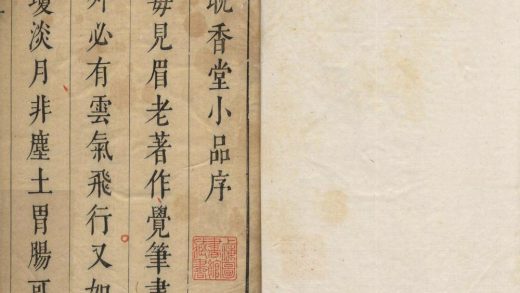 晚香堂小品序
每見眉老著作覺筆
外必有雲氣飛行又如
瓊淡月非塵土胃腸可